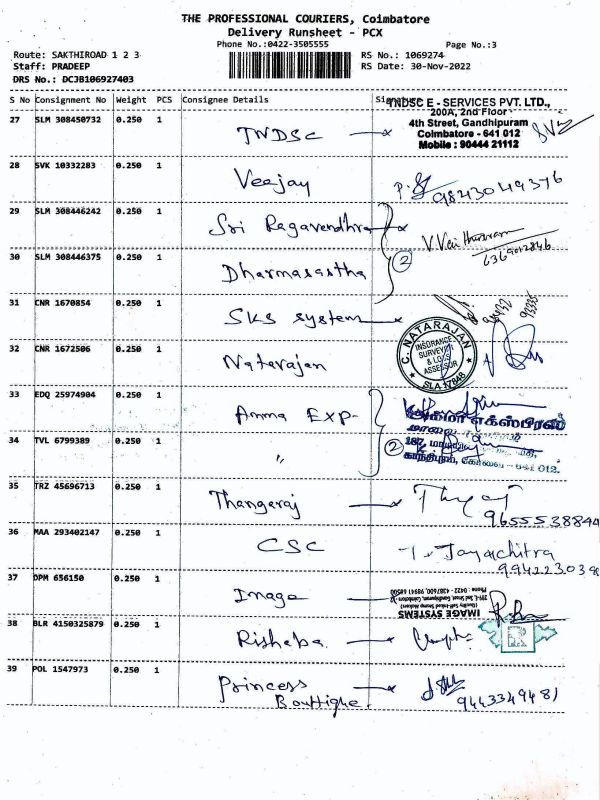 THE PROFESSIONAL COURIERS, Coimbatore
Delivery Runsheet - PCX
Phone No.:0422-3505555
Page No.:3
Route: SAKTHIROAD 1 2 3
RS No.: 1069274
Staff: PRADEEP
RS Date: 30-Nov-2022
DRS No.: DCJB106927403
S No Consignment No Weight PCS Consignee Details
TNDSC E - SERVICES PVT. LTD.,
200A, 2nd Floor
4th Street, Gandhipuram
Coimbatore - 641 012
Mobile : 90444 21112
27 SLM 308450732 0.250 1 TNDSC
28 SVK 10332283 0.250 1 Veejay
9843049376
29 SLM 308446242 0.250 1 Sri Ragavendhra
2
6369012846
30 SLM 308446375 0.250 1 Dharmasastha
31 CNR 1670854 0.250 1 SKS system
32 CNR 1672506 0.250 1 Natarajan
C. NATARAJAN
INSURANCE
SURVEYOR
& LOSS
ASSESSOR
33 EDQ 25974904 0.250 1 Amma Exp-
எக்ஸ்பிரஸ்
மாலை
34 TVL 6799389 0.250 1 "
2
187,
காந்திபுரம், கோவை - 641 012.
35 TRZ 45696713 0.250 1 Thangaraj
9655538844
36 MAA 293402147 0.250 1 CSC
T. Jayachitra
37 DPM 656150 0.250 1 Image
IMAGE SYSTEMS
38 BLR 4150325879 0.250 1 Rishaba
39 POL 1547973 0.250 1 Princess
Bouttique
9443349481